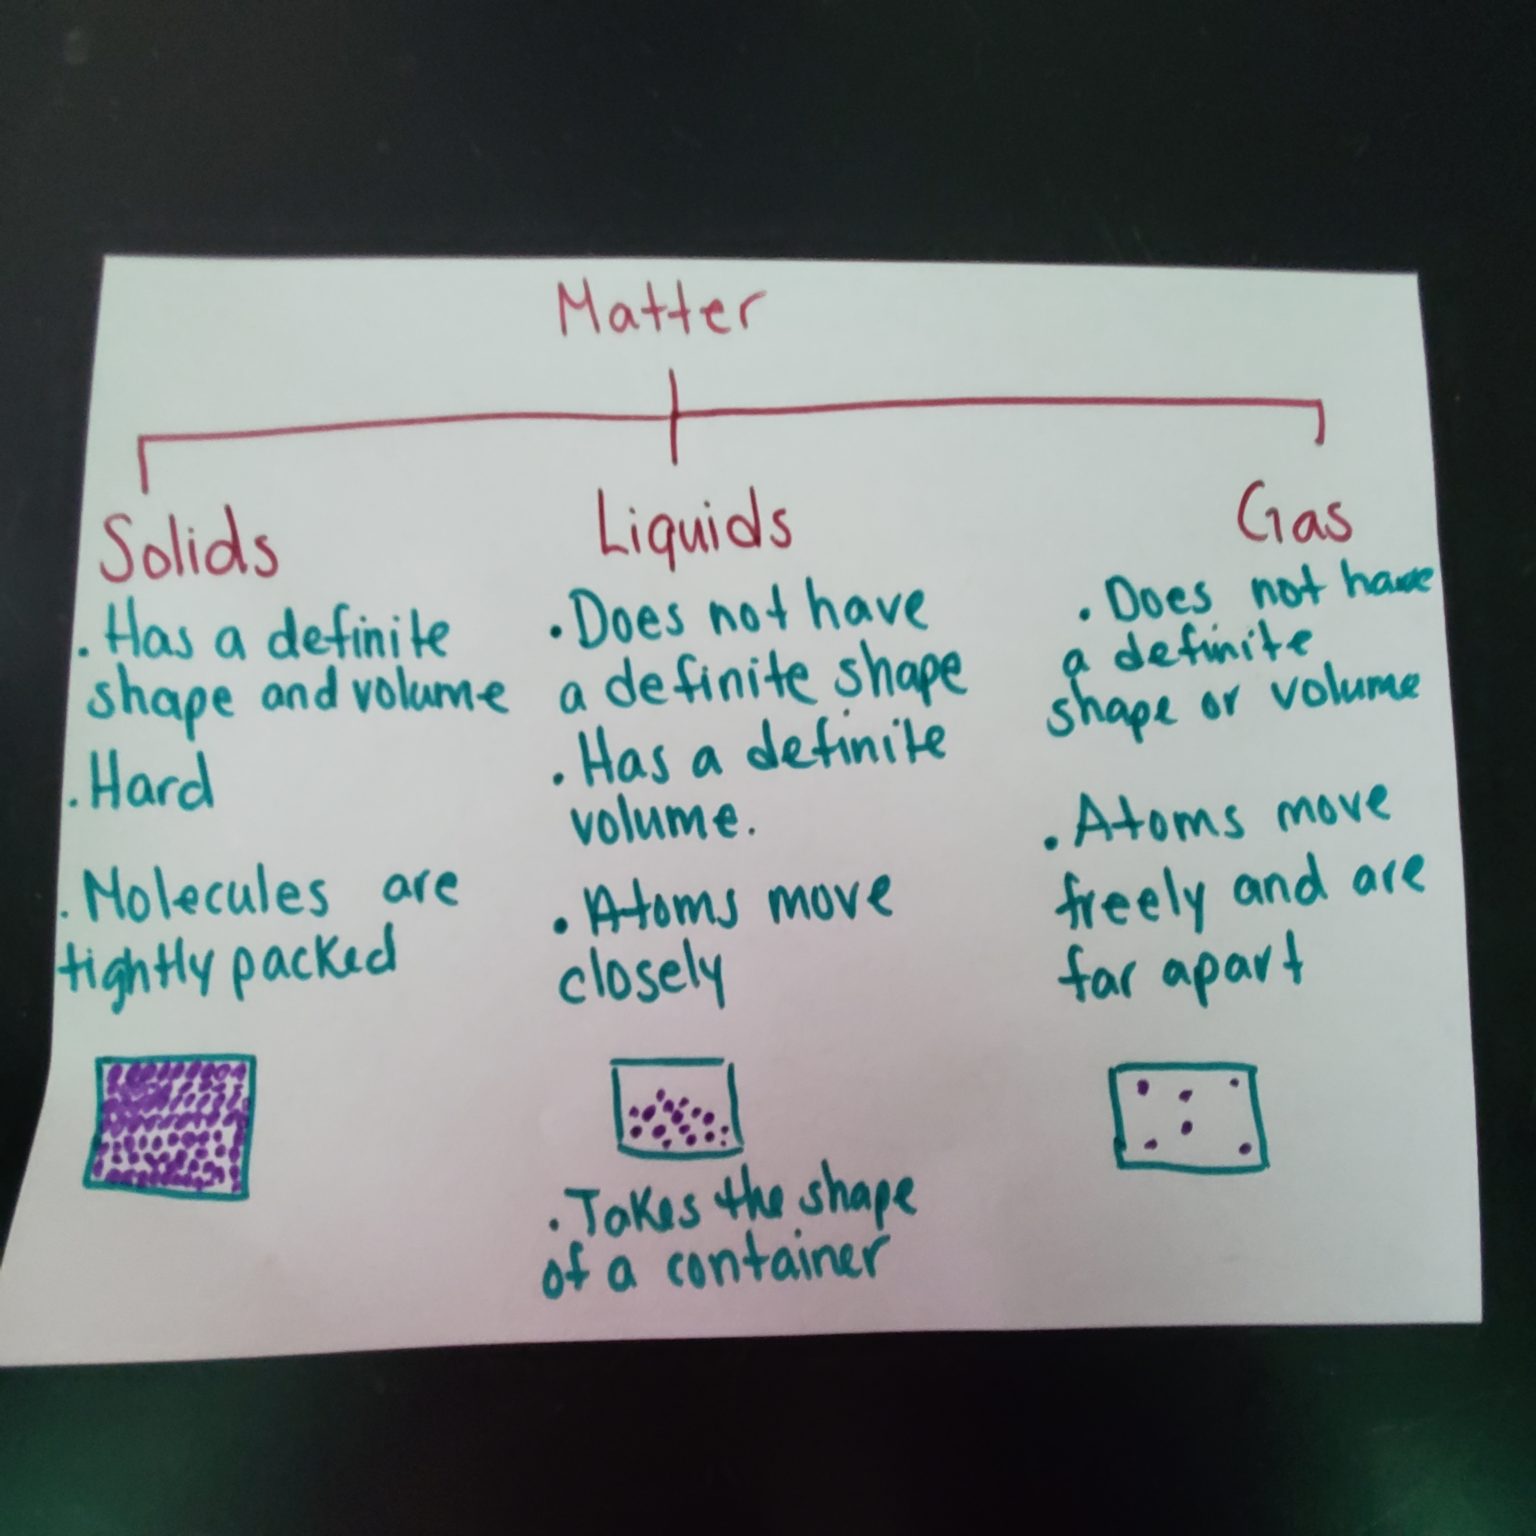 Matter
Solids
. Has a definite
shape and volume
. Hard
. Molecules are
tightly packed
Liquids
. Does not have
a definite shape
. Has a definite
volume.
. Atoms move
closely
. Takes the shape
of a container
Gas
. Does not have
a definite
shape or volume
. Atoms move
freely and are
far apart